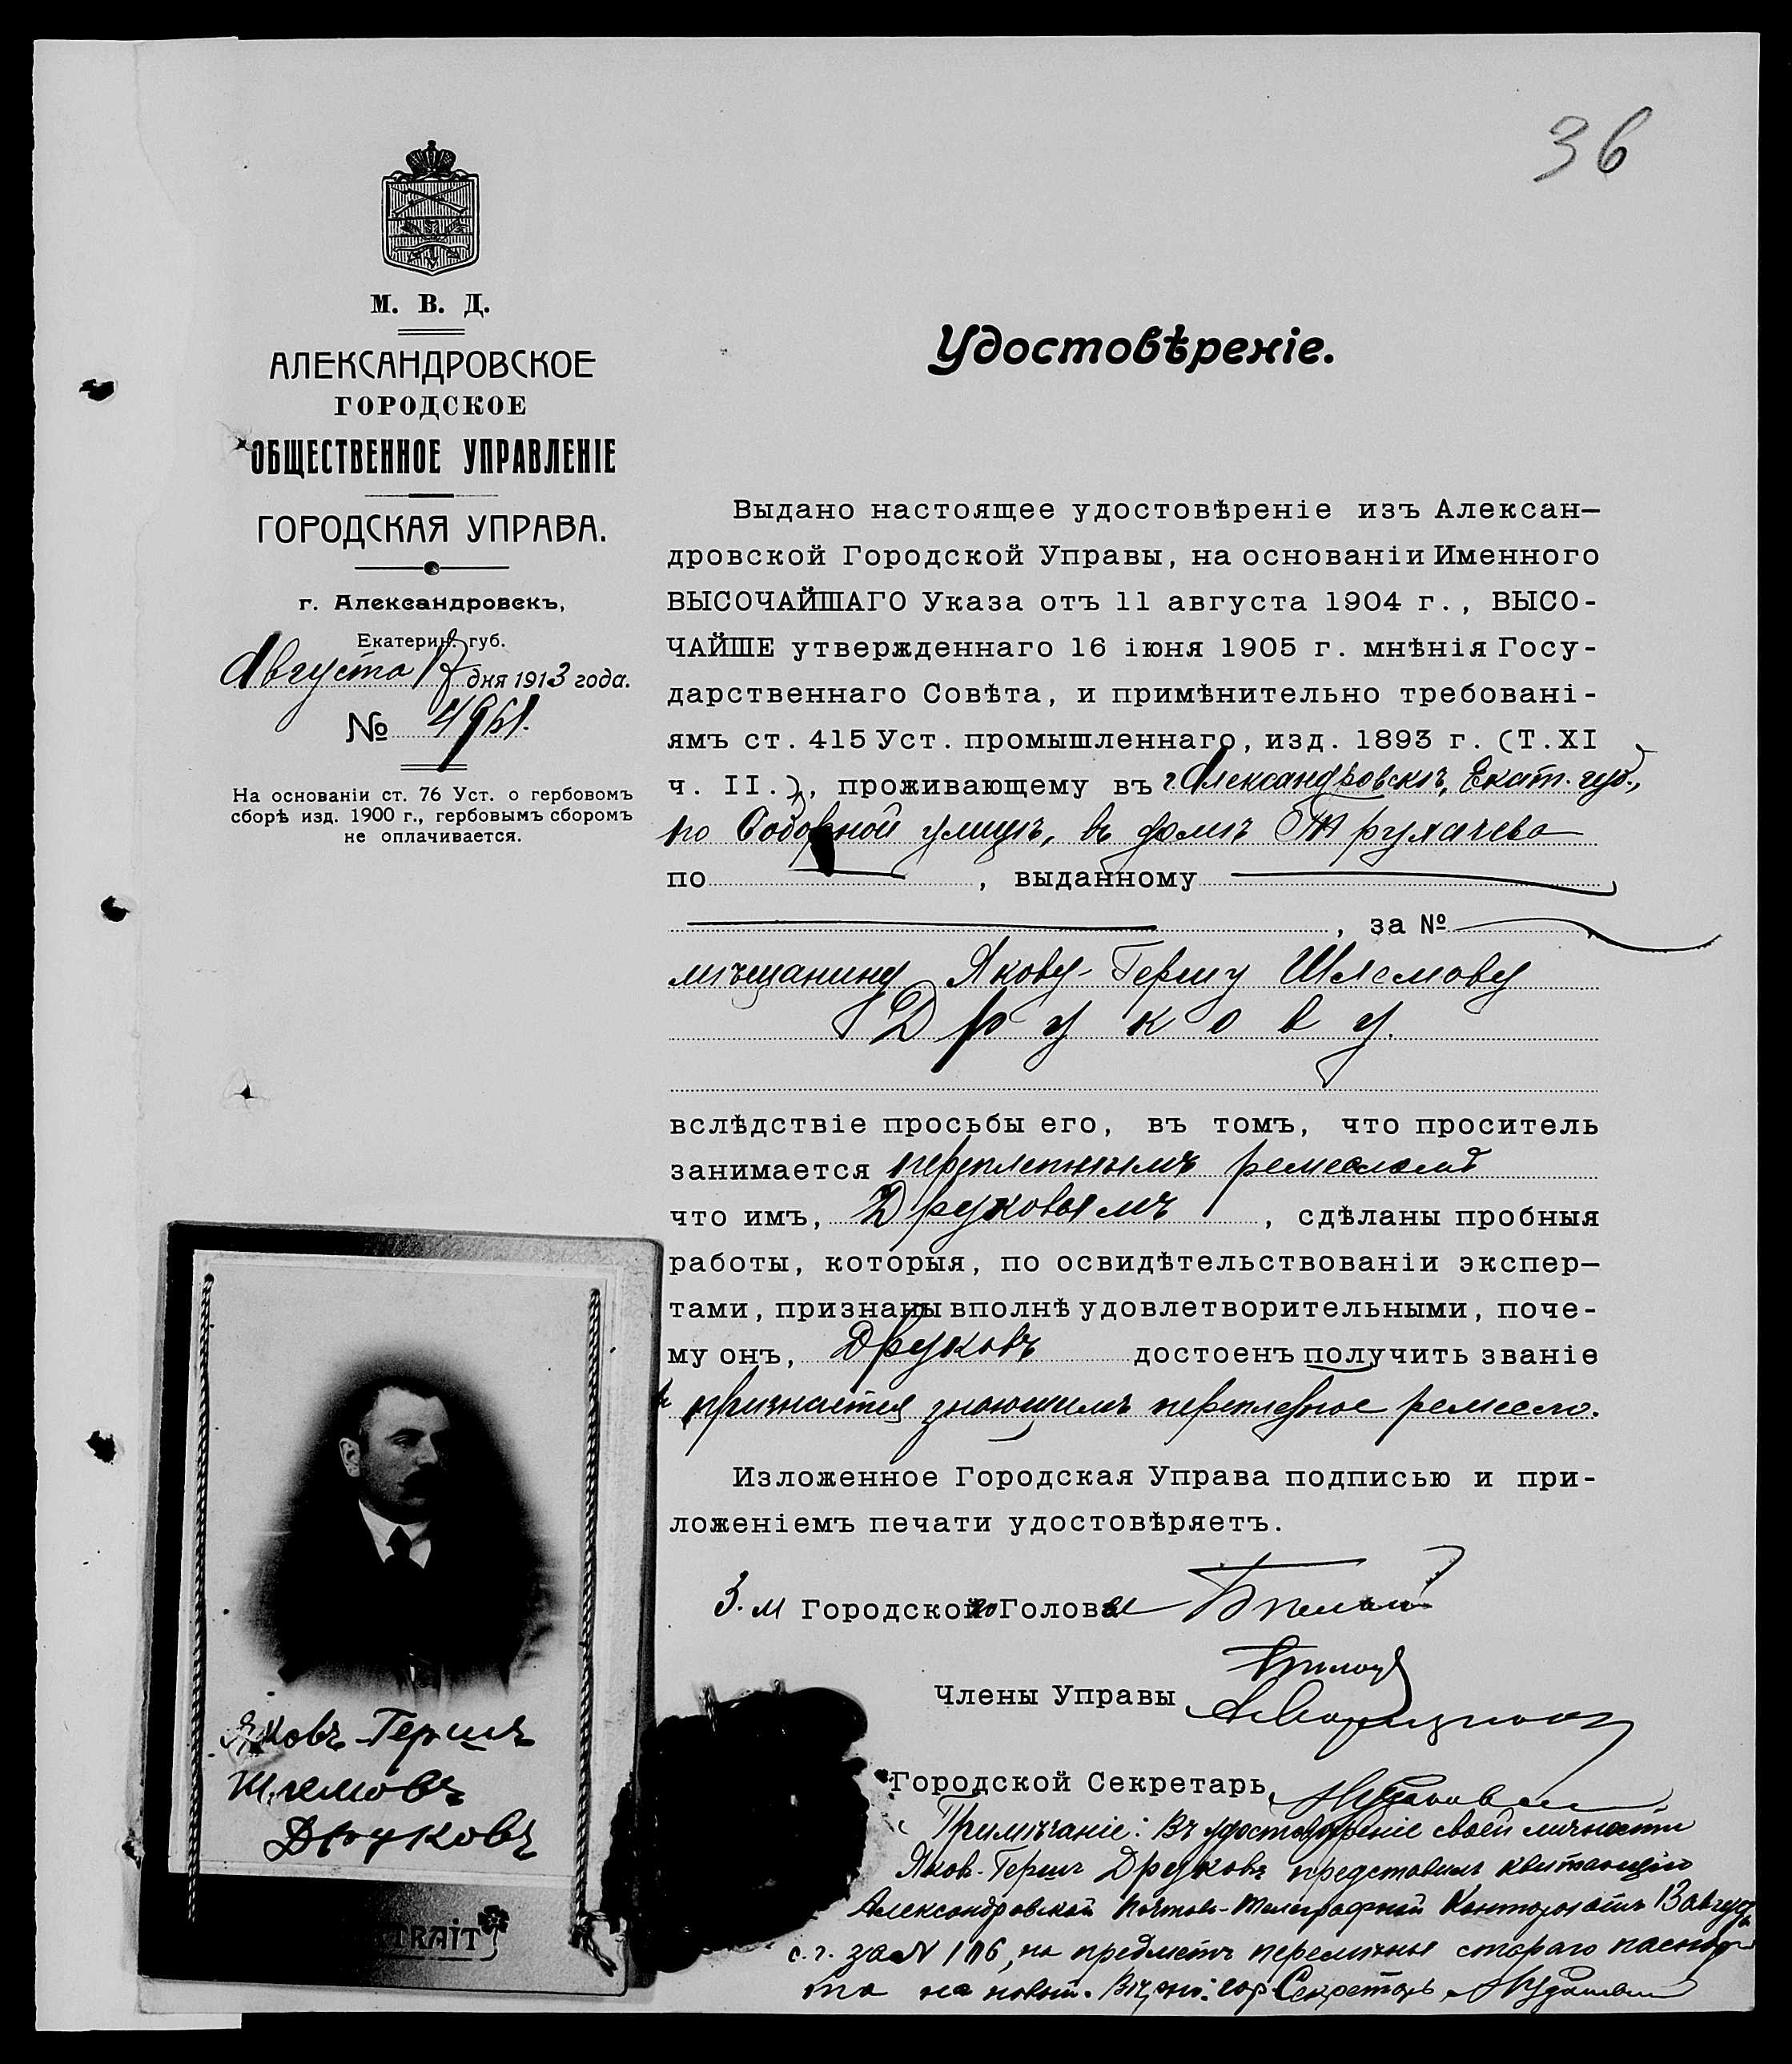 36
М. В. Д.
АЛЕКСАНДРОВСКОЕ
ГОРОДСКОЕ
ОБЩЕСТВЕННОЕ УПРАВЛЕНІЕ
ГОРОДСКАЯ УПРАВА.
г. Александровскъ,
Екатерин. губ.
Августа дня 1913 года.
№ 4961.
На основаніи ст. 76 Уст. о гербовомъ
сборѣ изд. 1900 г., гербовымъ сборомъ
не оплачивается.
Удостовѣреніе.
Выдано настоящее удостовѣреніе изъ Алексан-
дровской Городской Управы, на основаніи Именного
ВЫСОЧАЙШАГО Указа отъ 11 августа 1904 г., ВЫСО-
ЧАЙШЕ утвержденнаго 16 іюня 1905 г. мнѣнія Госу-
дарственнаго Совѣта, и примѣнительно требовані-
ямъ ст. 415 Уст. промышленнаго, изд. 1893 г. (Т. XI
ч. II.), проживающему въ г. Александровскѣ, Екат. губ.,
по Соборной улицѣ, въ домѣ Трулачева
по , выданному
, за №
мѣщанину Якову-Гершу Шлемову
Друкову.
вслѣдствіе просьбы его, въ томъ, что проситель
занимается переплетнымъ ремесломъ
что имъ, Друковымъ, сдѣланы пробныя
работы, которыя, по освидѣтельствованіи экспер-
тами, признаны вполнѣ удовлетворительными, поче-
му онъ, Друковъ достоенъ получить званіе
и признается знающимъ переплетное ремесло.
Изложенное Городская Управа подписью и при-
ложеніемъ печати удостовѣряетъ.
З. м Городского Головы
Члены Управы
Городской Секретарь
Примѣчаніе: Въ удостовѣреніе своей личности
Яков-Гершъ Друковъ представилъ квитанцію
Александровской Почтово-Телеграфной Конторы отъ 13 августа
с. г. за № 116, на предметъ перемѣны стараго паспор-
та на новый. Вѣрно: Гор. Секретарь
Яковъ-Гершъ
Шлемовъ
Друковъ